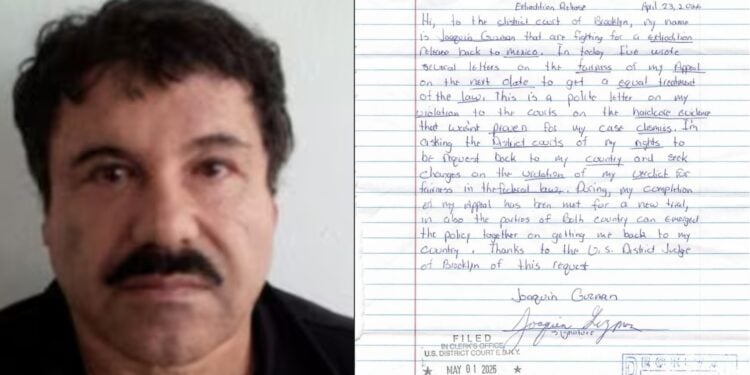 Extradition Release April 23, 2026
Hi, to the district court of Brooklyn, my name
is Joaquin Guzman that are fighting for a extradition
release back to mexico. In today I've wrote
several letters on the fairness of my Appeal
on the next date to get a equal treatment
of the law. This is a polite letter on my
violation to the courts on the hardcore evidence
that wasint proven for my case dismiss. I'm
asking the District courts of my rights to
be request back to my country and seek
changes on the violation of my verdict for
fairness in the federal law. During, my completion
of my Appeal has been met for a new trial,
in also the parties of Both country can Emerged
the policy together on getting me back to my
Country. Thanks to the U.S. District Judge
of Brooklyn of this request
Joaquin Guzman
Signature
FILED
IN CLERK'S OFFICE
U.S. DISTRICT COURT E.D.N.Y.
★ MAY 01 2026 ★